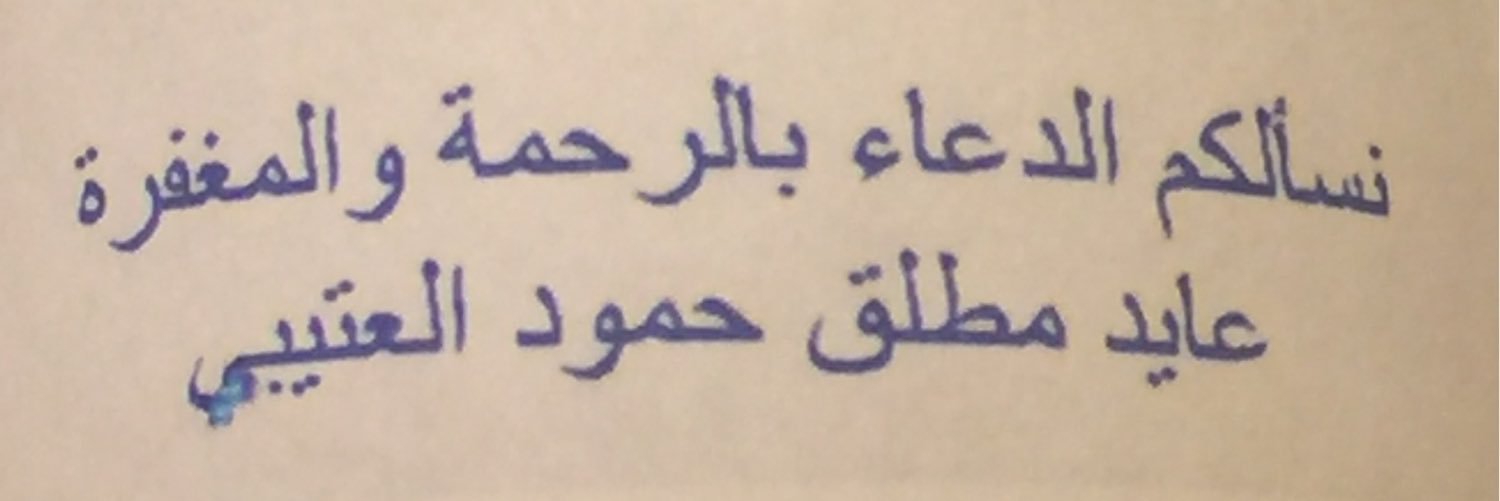 نسألكم الدعاء بالرحمة والمغفرة
عايد مطلق حمود العتيبي